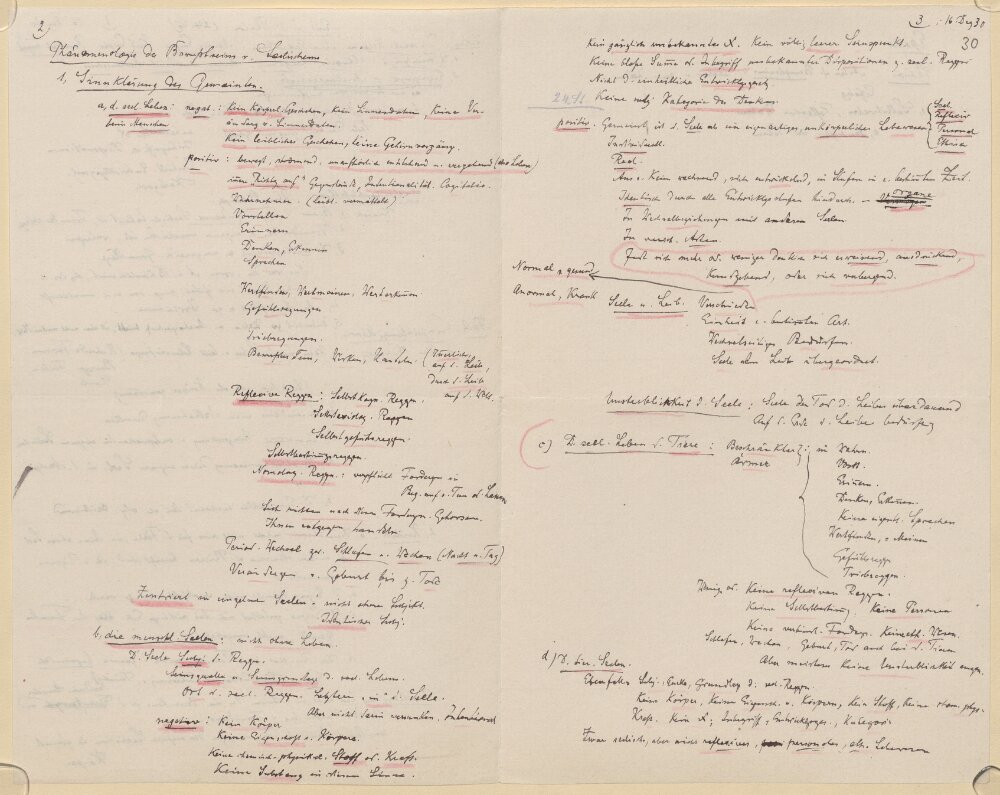 2
Phänomenologie des Bewusstseins u. Seelischen
1, Sinnklärung des Gemeinten.
a, d. seel. Leben: negat.: Kein körperl. Geschehen, kein Sinnendaten, keine Ver-
beim Menschen änderg v. Sinnendaten.
Kein leibliches Geschehen, keine Gehirnvorgänge.
positiv: bewegt, strömend, unaufhörlich entstehend u. vergehend (das Leben)
"Richtg auf" Gegenstände, Intentionalität. Cogitatio.
Wahrnehmen (leibl. vermittelt)
Vorstellen
Erinnern
Denken, Erkennen
Sprechen
Wertfinden, Wertmeinen, Werterkennen
Gefühlsregungen
Triebregungen.
Bewusstes Tun, Wirken, Handeln. (Innerlich,
auf d. Leib,
durch d. Leib
auf d. Welt.
Reflexive Reggn: Selbst Reggn.
Reggen
Selbstgefühlsreggen.
Selbstbestimmungsreggen.
Reggn.: verpflicht. Forderngn in
Bez. auf s. Tun od. Lassen
Sich richten nach diesen Forderngn. Gehorsam.
Ihnen entgegen handeln.
Period. Wechsel zw. Schlafen u. Wachen (Nacht u. Tag)
Veränderngen v. Geburt bis z. Tod
Zentriert in einzelne Seelen: nicht ohne Subjekt.
Identisches Subj.
b, die menschl. Seelen: nicht ohne Leben.
D. Seele Subj. d. Reggn.
Seinsquelle u. Seinsgrundlage d. seel. Lebens.
Ort d. seel. Reggn. Letztere "in" d. Seele.
Aber nicht darin versunken, Intentional
negativ: Kein Körper
Keine Eigenschaft v. Körpern.
Keine chemisch-physikal. Stoff od. Kraft.
Keine Substanz in diesem Sinne.
3 16 Dez 30
30
Kein gänzlich unbekanntes X. Kein völlig leerer Sinnpunkt.
Keine blosse Summe od. Inbegriff unbekannter Dispositionen z. seel. Reggn
Nicht d. einheitliche Entwicklgsgesetz.
24./I. Keine Kategorie des Denkens.
positiv. Gemeint ist d. Seele als ein eigenartiges, unkörperliches Lebewesen
Seel.
Reflexiv
Personal
Ethisch
Individuell.
Real.
Aus e. Keim wachsend, sich entwickelnd, in Stufen in e. bestimten Zeit.
Identisch durch alle Entwicklgsstufen hindurch. – Organe
In Wechselbeziehungen mit anderen Seelen.
In versch. Arten.
sich mehr od. weniger deutlich sich erweisend, ausdrückend,
kundgebend, oder sich verbergend.
Normal u. gesund
Anormal, Krank
Seele u. Leib. Verschieden
Einheit e. bestimten Art.
Wechselseitiges Bedürfen.
Seele dem Leib übergeordnet.
Unsterblichkeit d. Seele: Seele den Tod d. Leibes überdauernd
Auf d. Erde d. Leibes bedürfig
c) D. seel. Leben d. Tiere: Beschränkter: in Wahrn.
Ärmer Vorst.
Erinern.
Denken, Erkenen.
Keine eigentl. Sprachen
Wertfinden, u. Meinen
Gefühlsreggn
Triebreggen.
Wenig od. Keine reflexiven Reggen.
Keine Selbstbestimg. Keine Personen
Keine Forderg. Keine eth. Wesen.
Schlafen, Wachen, Geburt, Tod auch bei d. Tieren
Aber meistens keine Unsterblichkeit
d) D. tier. Seelen.
Ebenfalls Subj, Quelle, Grundlag d. seel. Reggn.
Kein Körper, Keine Eigensch. v. Körpern, Kein Stoff, Keine chem. phys.
Kraft. Kein X, Inbegriff, Entwicklgsges., Kategorie
Etwas seelisch, aber weniger reflexives, personales, eth. Lebewesen